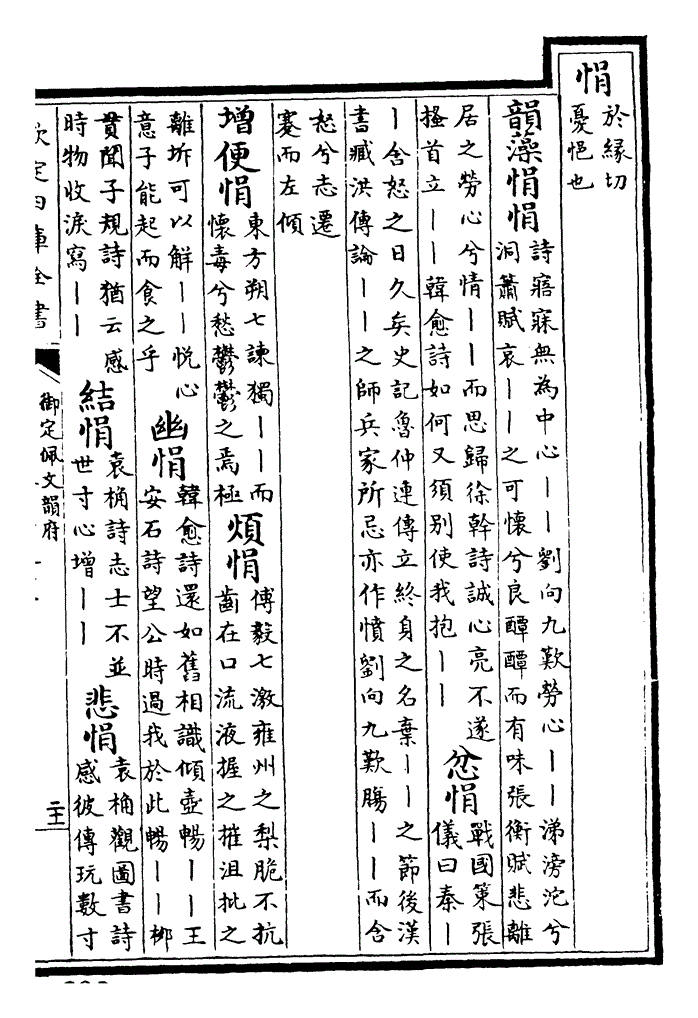 悁
於縁切
憂悒也
韻藻悁悁
詩寤寐無為中心丨丨劉向九歎勞心丨丨涕滂沱兮
洞簫賦哀丨丨之可懷兮良醰醰而有味張衡賦悲離
居之勞心兮情丨丨而思歸徐幹詩誠心亮不遂
搔首立丨丨韓愈詩如何又須別使我抱丨丨
忿悁
戰國策張
儀曰秦丨
丨含怒之日久矣史記魯仲連傳立終身之名棄丨丨之節後漢
書臧洪傳論丨丨之師兵家所忌亦作憤劉向九歎腸丨丨而含
怒兮志遷
蹇而左傾
增便悁
東方朔七諫獨丨丨而
懷毒兮愁鬱鬱之焉極
煩悁
傅毅七激雍州之梨脆不抗
齒在口流液握之摧沮批之
離坼可以解丨丨悅心
意子能起而食之乎
幽悁
韓愈詩還如舊相識傾壺暢丨丨王
安石詩望公時過我於此暢丨丨柳
貫聞子規詩猶云感
時物收淚寫丨丨
結悁
袁桷詩志士不並
世寸心增丨丨
悲悁
袁桷觀圖書詩
感彼傳玩數寸
欽定四庫全書
御定佩文韻府